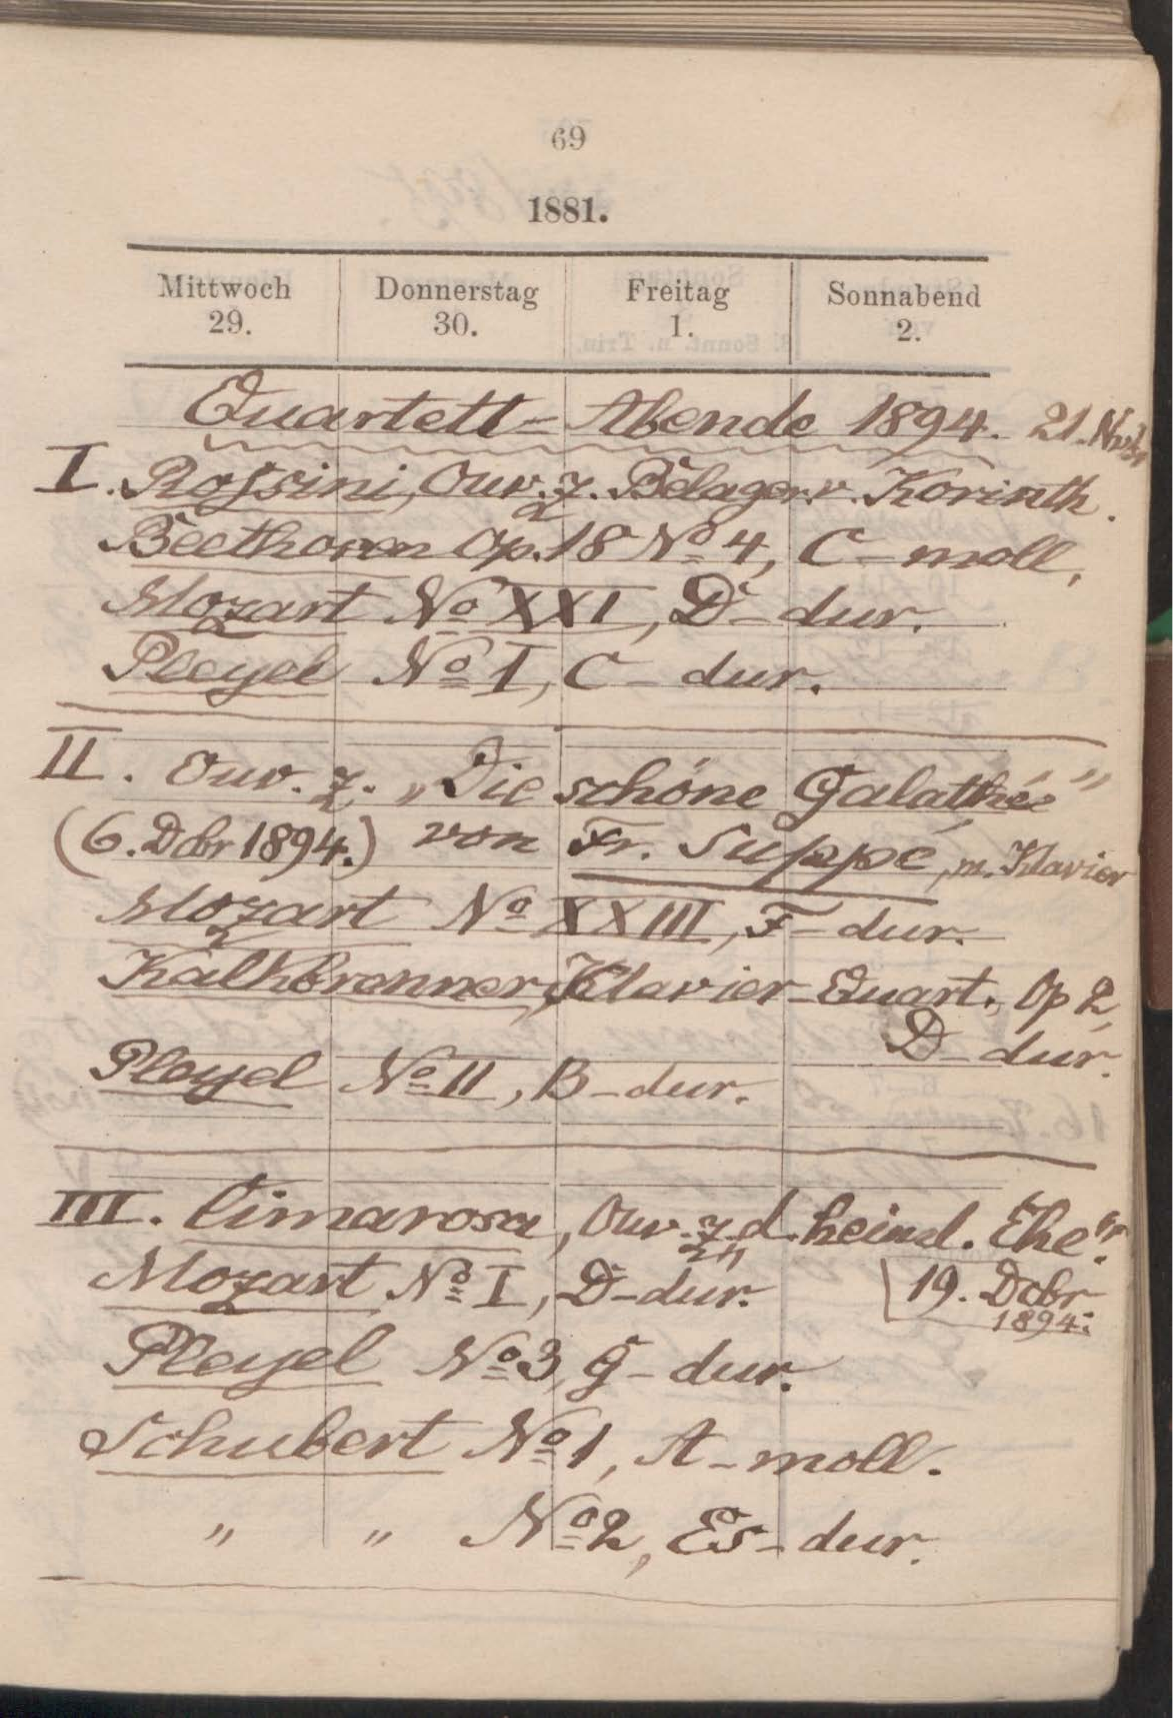 69
1881.
Mittwoch Donnerstag Freitag Sonnabend
29. 30. 1. 2.
Quartett-Abende 1894. 21. Nvbr
I. Rossini, Ouv. z. Belager. v. Korinth.
Beethoven Op. 18 No 4, C-moll,
Mozart No XXI, D-dur.
Pleyel No I, C-dur.
II. Ouv. z. „Die schöne Galathée"
(6. Dcbr 1894.) von Fr. Suppé, m. Klavier
Mozart No XXIII, F-dur.
Kalkbrenner, Klavier-Quart. Op 2,
D-dur.
Pleyel No II, B-dur.
III. Cimarosa, Ouv. z. „d. heiml. Ehe".
Mozart No I, D-dur. 19. Dcbr
1894.
Pleyel No 3, G-dur.
Schubert No 1, A-moll.
" " No 2, Es-dur.